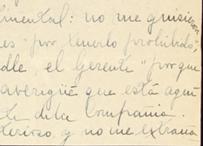 imental: no me quisieron
es "por tenerlo prohibido"
dle, el gerente "porque
averigüé que está aquí
te dicha Compañia.
terioso, y no me extraña